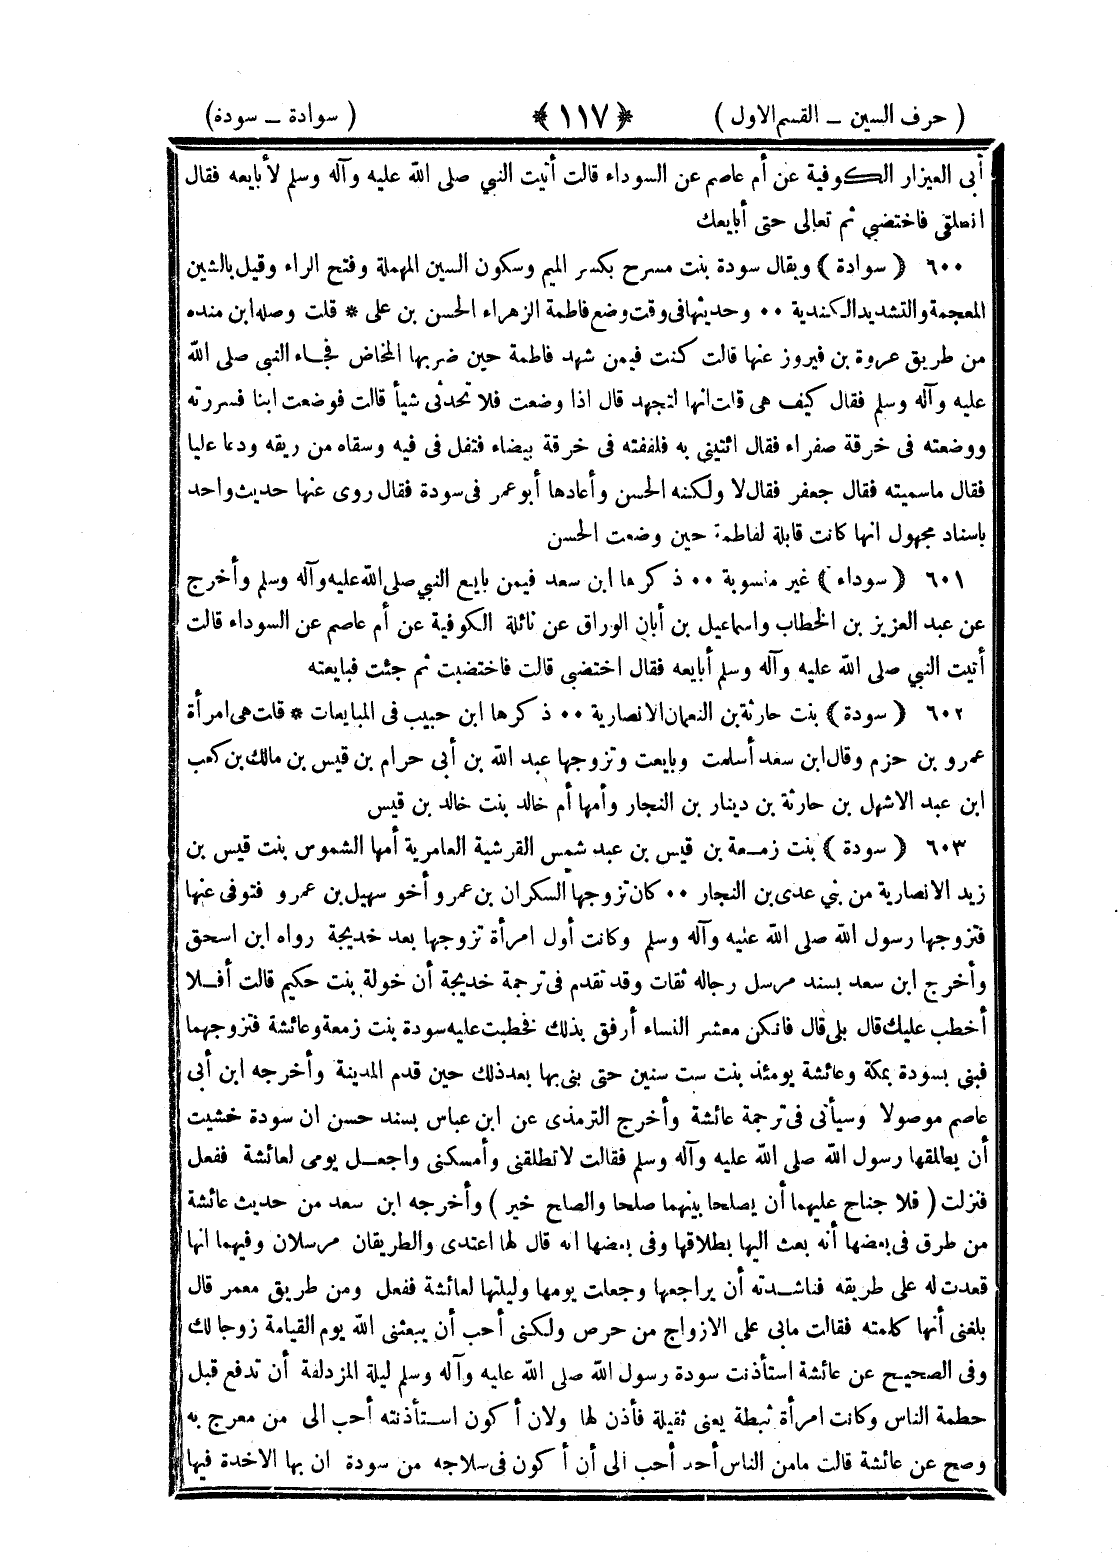 ( حرف السين ـ القسم الاول ) ﴿ ١١٧ ﴾ ( سوادة ـ سودة)
أبى العيزار الكوفية عن أم عاصم عن السوداء قالت أتيت النبي صلى الله عليه وآله وسلم لأبايعه فقال
انطلقى فاختضبي ثم تعالى حتى أبايعك
٦٠٠ ( سوادة ) ويقال سودة بنت مسرح بكسر الميم وسكون السين المهملة وفتح الراء وقيل بالشين
المعجمة والتشديد الكندية ٠٠ وحديثها فى وقت وضع فاطمة الزهراء الحسن بن على * قلت وصله ابن منده
من طريق عروة بن فيروز عنها قالت كنت فيمن شهد فاطمة حين ضربها المخاض فجاء النبي صلى الله
عليه وآله وسلم فقال كيف هى قلت انها لتجهد قال اذا وضعت فلا تحدثى شيأ قالت فوضعت ابنا فسررته
ووضعته فى خرقة صفراء فقال ائتيني به فلففته فى خرقة بيضاء فتفل فى فيه وسقاه من ريقه ودعا عليا
فقال ماسميته فقال جعفر فقال لا ولكنه الحسن وأعادها أبو عمر فى سودة فقال روى عنها حديث واحد
باسناد مجهول انها كانت قابلة لفاطمة حين وضعت الحسن
٦٠١ ( سوداء ) غير منسوبة ٠٠ ذكرها ابن سعد فيمن بايع النبي صلى الله عليه وآله وسلم وأخرج
عن عبد العزيز بن الخطاب واسماعيل بن أبان الوراق عن نائلة الكوفية عن أم عاصم عن السوداء قالت
أتيت النبي صلى الله عليه وآله وسلم أبايعه فقال اختضبى قالت فاختضبت ثم جئت فبايعته
٦٠٢ ( سودة ) بنت حارثة بن النعمان الانصارية ٠٠ ذكرها ابن حبيب فى المبايعات * قلت هى امرأة
عمرو بن حزم وقال ابن سعد أسلمت وبايعت وتزوجها عبد الله بن أبى حرام بن قيس بن مالك بن كعب
ابن عبد الاشهل بن حارثة بن دينار بن النجار وأمها أم خالد بنت خالد بن قيس
٦٠٣ ( سودة ) بنت زمعة بن قيس بن عبد شمس القرشية العامرية أمها الشموس بنت قيس بن
زيد الانصارية من بني عدى بن النجار ٠٠ كان تزوجها السكران بن عمرو أخو سهيل بن عمرو فتوفى عنها
فتزوجها رسول الله صلى الله عليه وآله وسلم وكانت أول امرأة تزوجها بعد خديجة رواه ابن اسحق
وأخرج ابن سعد بسند مرسل رجاله ثقات وقد تقدم فى ترجمة خديجة أن خولة بنت حكيم قالت أفلا
أخطب عليك قال بلى قال فانكن معشر النساء أرفق بذلك فخطبت عليه سودة بنت زمعة وعائشة فتزوجهما
فبنى بسودة بمكة وعائشة يومئذ بنت ست سنين حتى بنى بها بعد ذلك حين قدم المدينة وأخرجه ابن أبى
عاصم موصولا وسيأتى فى ترجمة عائشة وأخرج الترمذى عن ابن عباس بسند حسن ان سودة خشيت
أن يطلقها رسول الله صلى الله عليه وآله وسلم فقالت لاتطلقنى وأمسكنى واجعل يومى لعائشة ففعل
فنزلت ( فلا جناح عليهما أن يصلحا بينهما صلحا والصلح خير ) وأخرجه ابن سعد من حديث عائشة
من طرق فى بعضها أنه بعث اليها بطلاقها وفى بعضها انه قال لها اعتدى والطريقان مرسلان وفيهما انها
قعدت له على طريقه فناشدته أن يراجعها وجعلت يومها وليلتها لعائشة ففعل ومن طريق معمر قال
بلغنى أنها كلمته فقالت مابى على الازواج من حرص ولكنى أحب أن يبعثنى الله يوم القيامة زوجا لك
وفى الصحيح عن عائشة استأذنت سودة رسول الله صلى الله عليه وآله وسلم ليلة المزدلفة أن تدفع قبل
حطمة الناس وكانت امرأة ثبطة يعنى ثقيلة فأذن لها ولان أكون استأذنته أحب الى من معرج به
وصح عن عائشة قالت مامن الناس أحد أحب الى أن أكون فى سلاجه من سودة ان بها الاخدة فيها